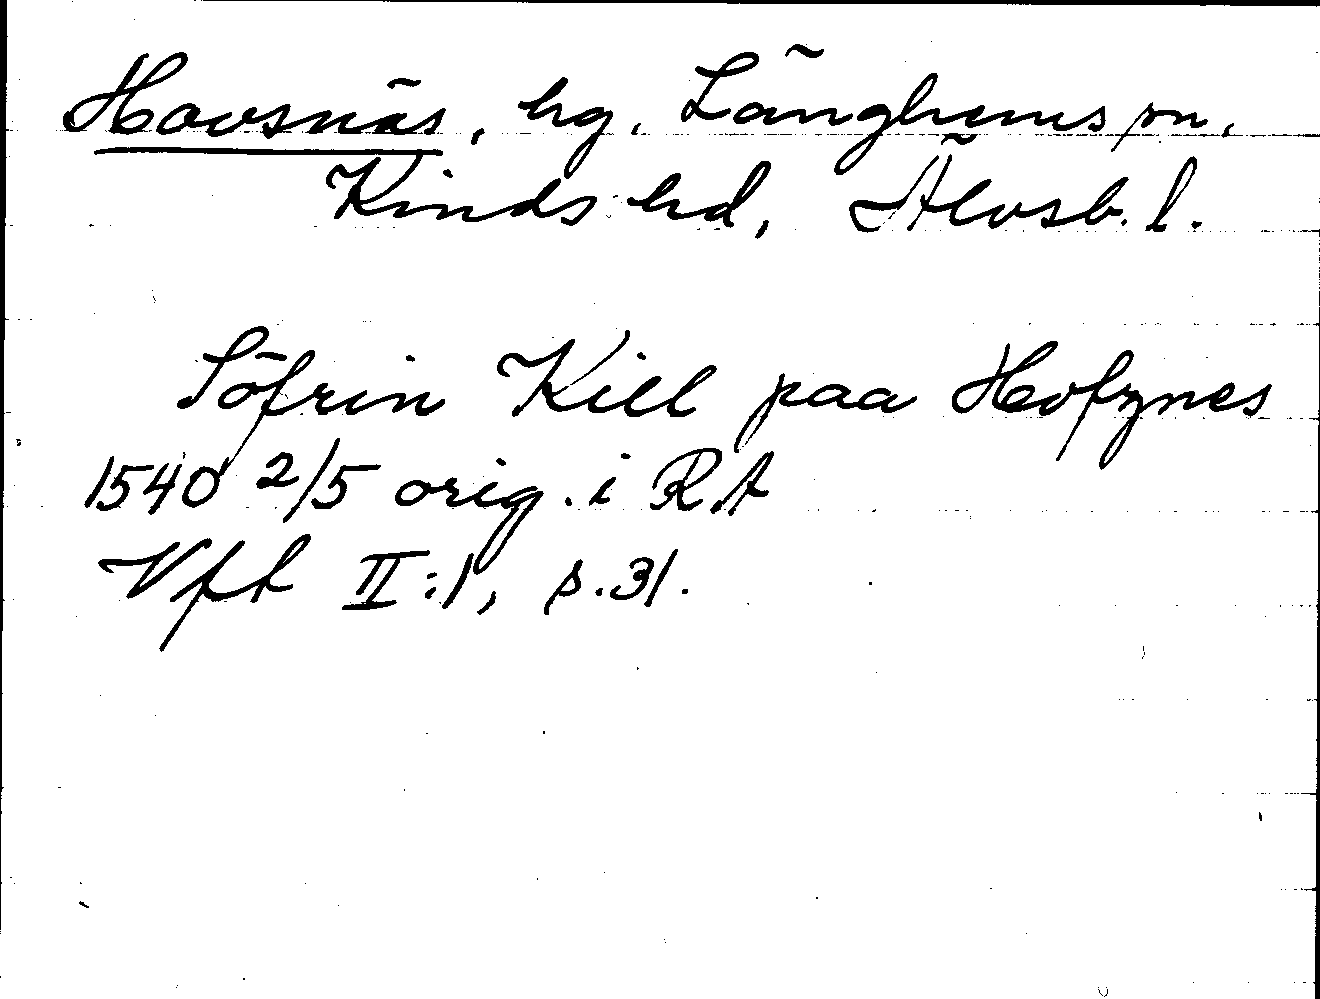 Hovsnäs, hg, Länghems sn,
Kinds hd, Älvsb. l.
Söfrin Kiil paa Hofznes
1540 2/5 orig. i RA
Vft II:1, s.31.